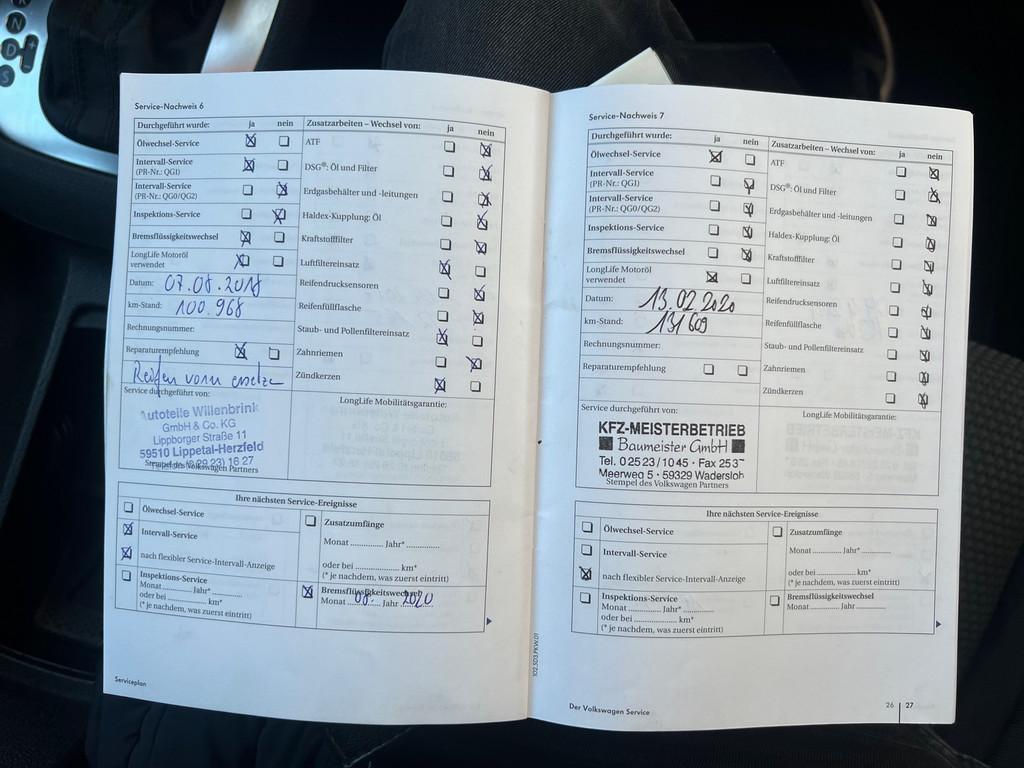 N
D
S
Service-Nachweis 6
Durchgeführt wurde: ja nein
Ölwechsel-Service
Intervall-Service
(PR-Nr.: QG1)
Intervall-Service
(PR-Nr.: QG0/QG2)
Inspektions-Service
Bremsflüssigkeitswechsel
LongLife Motoröl
verwendet
Datum: 07.08.2018
km-Stand: 100.968
Rechnungsnummer:
Reparaturempfehlung
Reifen vorn ersetzen
Service durchgeführt von:
Autoteile Willenbrink
GmbH & Co. KG
Lippborger Straße 11
59510 Lippetal-Herzfeld
(0 29 23) 16 27
Stempel des Volkswagen Partners
Zusatzarbeiten – Wechsel von: ja nein
ATF
DSG®: Öl und Filter
Erdgasbehälter und -leitungen
Haldex-Kupplung: Öl
Kraftstofffilter
Luftfiltereinsatz
Reifendrucksensoren
Reifenfüllflasche
Staub- und Pollenfiltereinsatz
Zahnriemen
Zündkerzen
LongLife Mobilitätsgarantie:
Ihre nächsten Service-Ereignisse
Ölwechsel-Service
Intervall-Service
nach flexibler Service-Intervall-Anzeige
Inspektions-Service
Monat ............ Jahr* ............
oder bei ............ km*
(* je nachdem, was zuerst eintritt)
Zusatzumfänge
Monat ............ Jahr* ............
oder bei ............ km*
(* je nachdem, was zuerst eintritt)
Bremsflüssigkeitswechsel
Monat 08. Jahr 2020
Serviceplan
Service-Nachweis 7
Durchgeführt wurde: ja nein
Ölwechsel-Service
Intervall-Service
(PR-Nr.: QG1)
Intervall-Service
(PR-Nr.: QG0/QG2)
Inspektions-Service
Bremsflüssigkeitswechsel
LongLife Motoröl
verwendet
Datum: 13.02.2020
km-Stand: 131609
Rechnungsnummer:
Reparaturempfehlung
Service durchgeführt von:
KFZ-MEISTERBETRIEB
Baumeister GmbH
Tel. 02523/1045 · Fax 253
Meerweg 5 · 59329 Wadersloh
Stempel des Volkswagen Partners
Zusatzarbeiten – Wechsel von: ja nein
ATF
DSG®: Öl und Filter
Erdgasbehälter und -leitungen
Haldex-Kupplung: Öl
Kraftstofffilter
Luftfiltereinsatz
Reifendrucksensoren
Reifenfüllflasche
Staub- und Pollenfiltereinsatz
Zahnriemen
Zündkerzen
LongLife Mobilitätsgarantie:
Ihre nächsten Service-Ereignisse
Ölwechsel-Service
Intervall-Service
nach flexibler Service-Intervall-Anzeige
Inspektions-Service
Monat ............ Jahr* ............
oder bei ............ km*
(* je nachdem, was zuerst eintritt)
Zusatzumfänge
Monat ............ Jahr* ............
oder bei ............ km*
(* je nachdem, was zuerst eintritt)
Bremsflüssigkeitswechsel
Monat ............ Jahr ............
102.5D3.PKW.01
Der Volkswagen Service
26 27